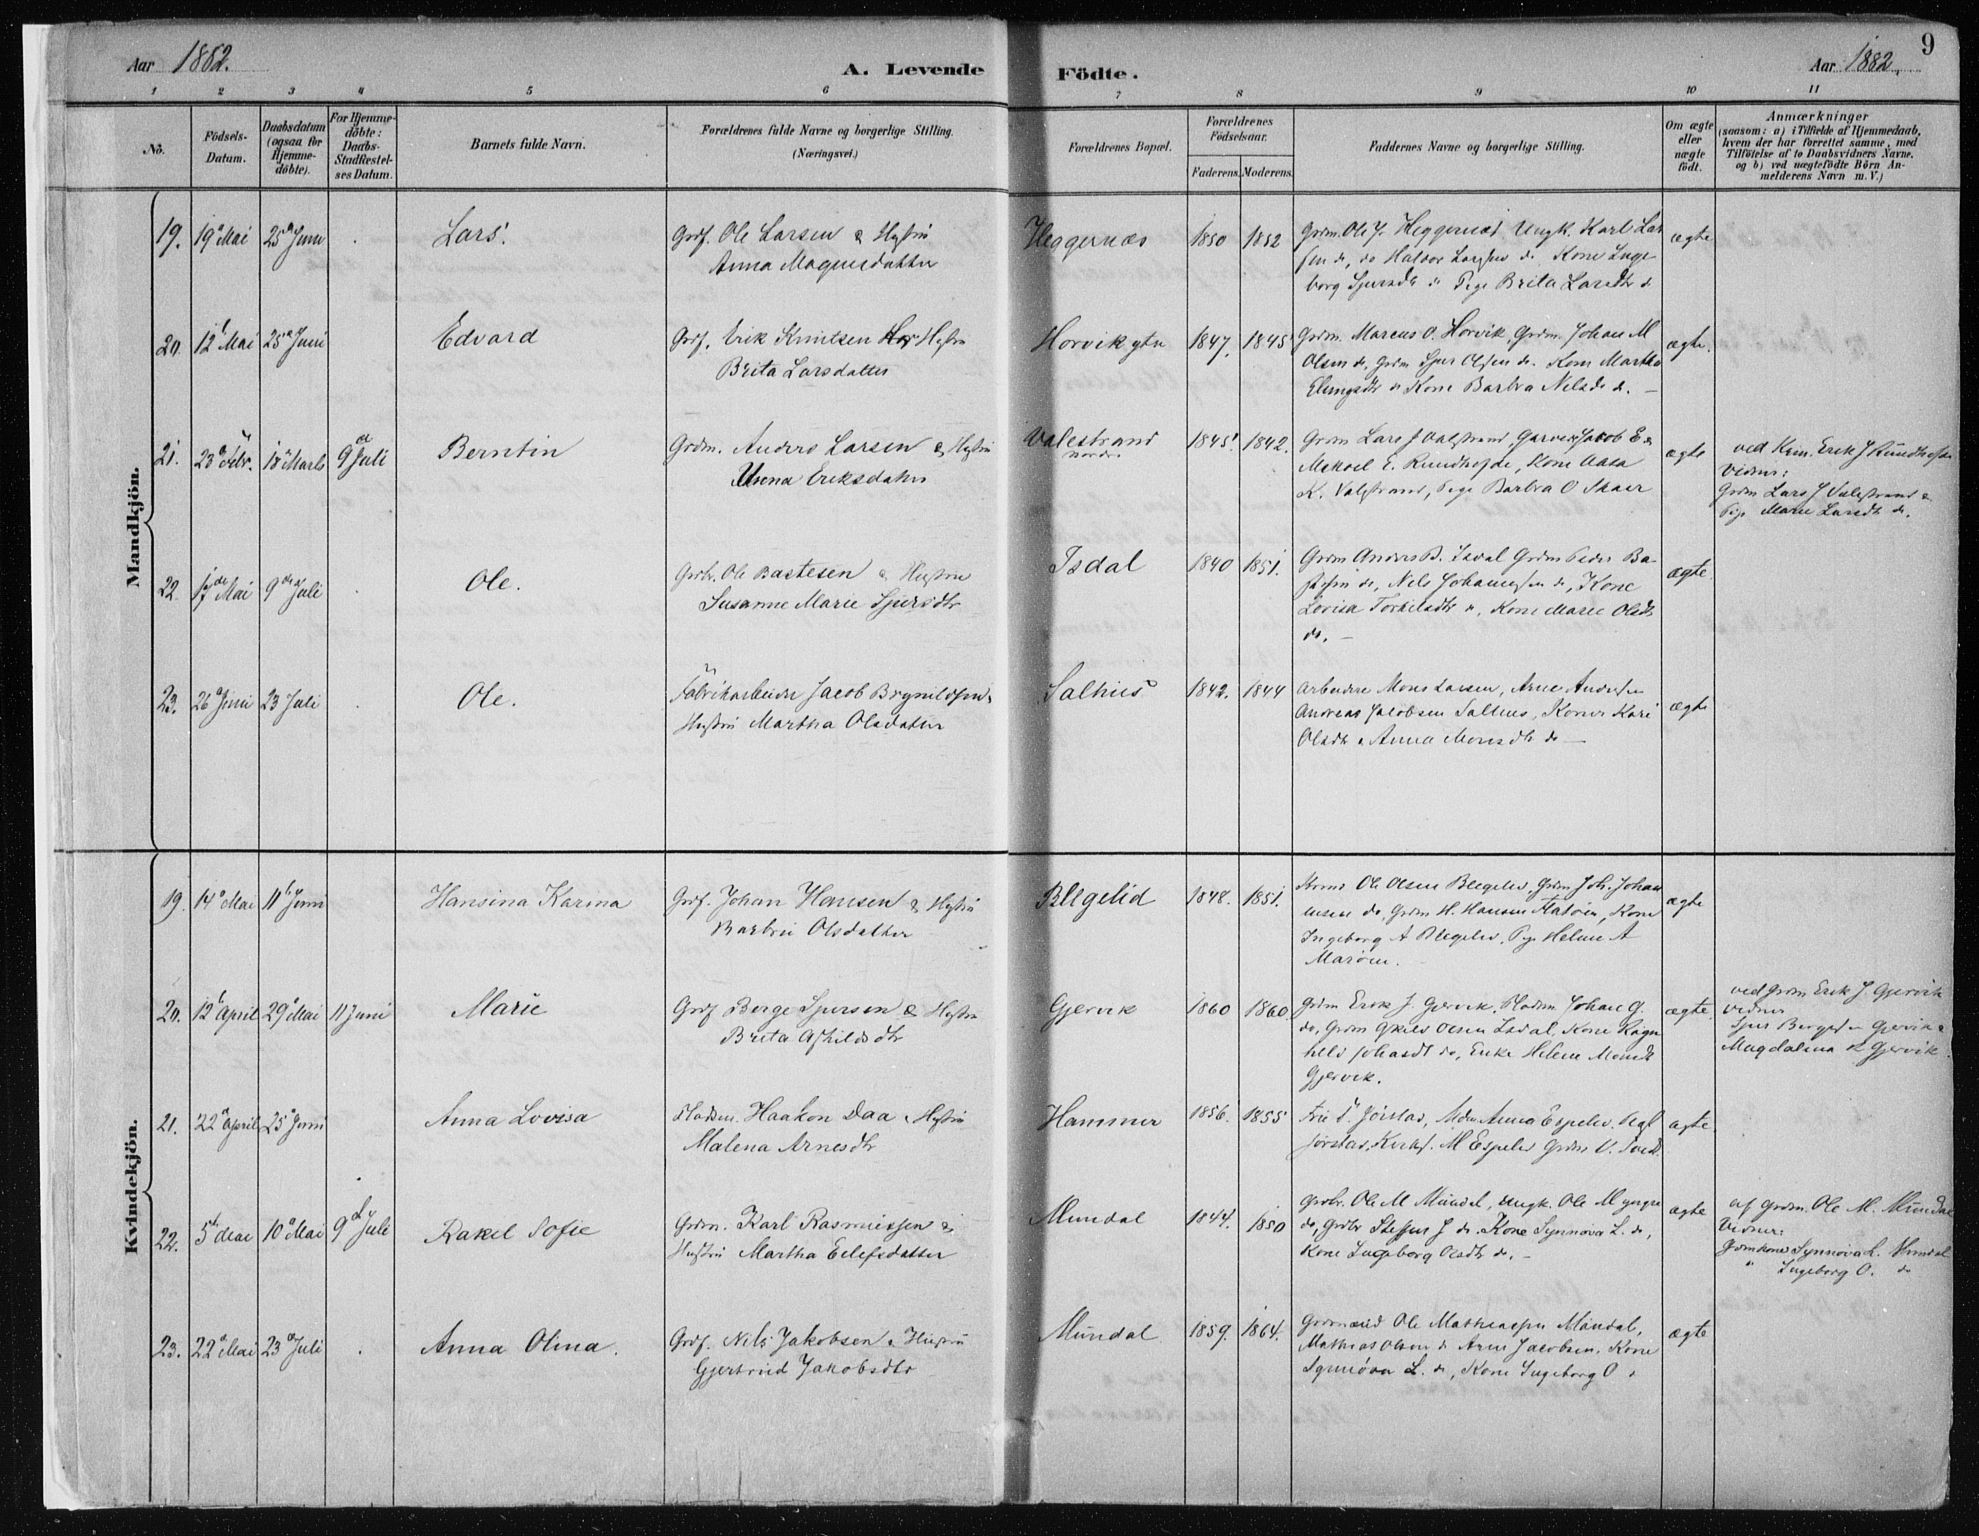 Aar 1882.
A. Levende Födte.
Aar 1882.
9
1 2 3 4 5 6 7 8 9 10 11
No.
Födsels-
Datum.
Daabsdatum
(ogsaa for
Hjemme-
döbte).
For Hjemme-
döbte:
Daabs-
Stadfæstel-
ses Datum.
Barnets fulde Navn.
Forældrenes fulde Navne og borgerlige Stilling.
(Næringsvei.)
Forældrenes Bopæl.
Forældrenes
Födselsaar.
Faderens. Moderens.
Faddernes Navne og borgerlige Stilling.
Om ægte
eller
uægte
födt.
Anmærkninger
(saasom: a) i Tilfælde af Hjemmedaab,
hvem der har forrettet samme, med
Tilföielse af to Daabsvidners Navne.
og b) ved uægtefödte Börn An-
melderens Navn m. V.)
Mandkjön.
19. 19 Mai 25 Juni Lars. Grdf. Ole Larsen & Hustru
Anna Magnusdatter
Heggernæs 1850 1852
Grdm. Ole J. Heggernæs Ungk. Karl Lar
sen do, do Haldor Larsen do Kone Inge
borg Sjursdtr Pige Brita Larsdtr do
ægte
20. 12 Mai 25 Juni Edvard Grdf. Erik Knutsen Hustru
Brita Larsdatter
Horvik ytre 1847. 1845
Grdm. Marcus O. Horvik, Grdm. Johans M
Olsen do, Grdm Sjur Olsen do. Kone Martha
Kone Barbra Nilsdr do.
ægte.
21. 23 Febr. 18 Marts 9 Juli Berntin Grdm. Anders Larsen & Hustru
Anna Eriksdatter
Valestrand
nordre
1845 1842.
Grdm Lars J Valestrand, Garver Jakob E &
E. Rundhofde, Kone Aasa
K. Valestrand, Pige Barbra O Skaar
ægte
ved Erik J Rundhofde
Vidner:
Grdm Lars J Valestrand &
Pige Marie Larsdtr do.
22. 17 Mai 9 Juli Ole. Grdbr. Ole Bastesen & Hustru
Susanne Marie Sjursdtr
Isdal 1840 1851.
Grdm Anders B. Isdal Grdm Peder Ba-
stesen do, Nels Johannesen do, Kone
Lovisa Torkilsdtr, Kone Marie Olsdtr
do.
ægte.
23. 26 Juni 23 Juli Ole. Fabrikarbeider Jacob Brynildsen &
Hustru Martha Olsdatter
Salhus 1842. 1844
Arbeidere Mons Larsen, Arne Andersen
Andreas Jacobsen Salhus, Koner Kari
Olsdtr & Anna Monsdtr do
ægte
Kvindekjön.
19. 14 Mai 11 Juni Hansina Karina Grdf. Johan Hansen & Hustru
Barbru Olsdatter
Blegelid 1848. 1851.
Ole Olsen Blegelid, Grdm Joh. Johan
nesen do, Grdm H. Hansen Flatöen, Kone
Ingeborg A Blegelid, Pige Helene A
Maröen.
ægte
20. 12 April 29 Mai 11 Juni Marie Grdf Børge Sjursen & Hustru
Brita Askildsdtr
Gjervik 1860 1860
Grdm Erik J. Gjervik, Pladsm Johan G.
do, Grdm Olsen Isdal, Kone Ragn
hild Johasdt do, Enke Helene Monsdt
Gjervik.
ægte.
ved Grdm Erik J. Gjervik
Vidner
Sjur Børgesen Gjervik &
Magdalena Gjervik.
21. 22 April 25 Juni Anna Lovisa Pladsm. Haakon Daa & Hustru
Malena Arnesdtr
Hammer 1856. 1855
Jörstad, Anna Espelid.
Jörstad, M Espelid Grdm
ægte
22. 5 Mai 10 Mai 9 Juli Rakel Sofie Grdm. Karl Rasmussen &
Hustru Martha Eilefsdatter
Mundal 1844. 1850
Grdbr. Ole M Mundal, Ungk. Ole M yngre
do, Grdbr J do. Kone Synnøva L. do,
Kone Ingeborg Olsdtr do.
ægte
af Grdm. Ole M. Mundal
Vidner:
Grdmkone Synnøva L. Mundal
" Ingeborg O. do
23. 22 Mai 23 Juli Anna Olina. Grdf. Nils Jakobsen & Hustru
Gjertrud Jakobsdtr
Mundal 1859. 1864.
Grdmænd Ole Mathiassen Mundal,
Mathias Olson do Arne Jacobsen. Kone
Synnöva L. do, Kone Ingeborg O
ægte